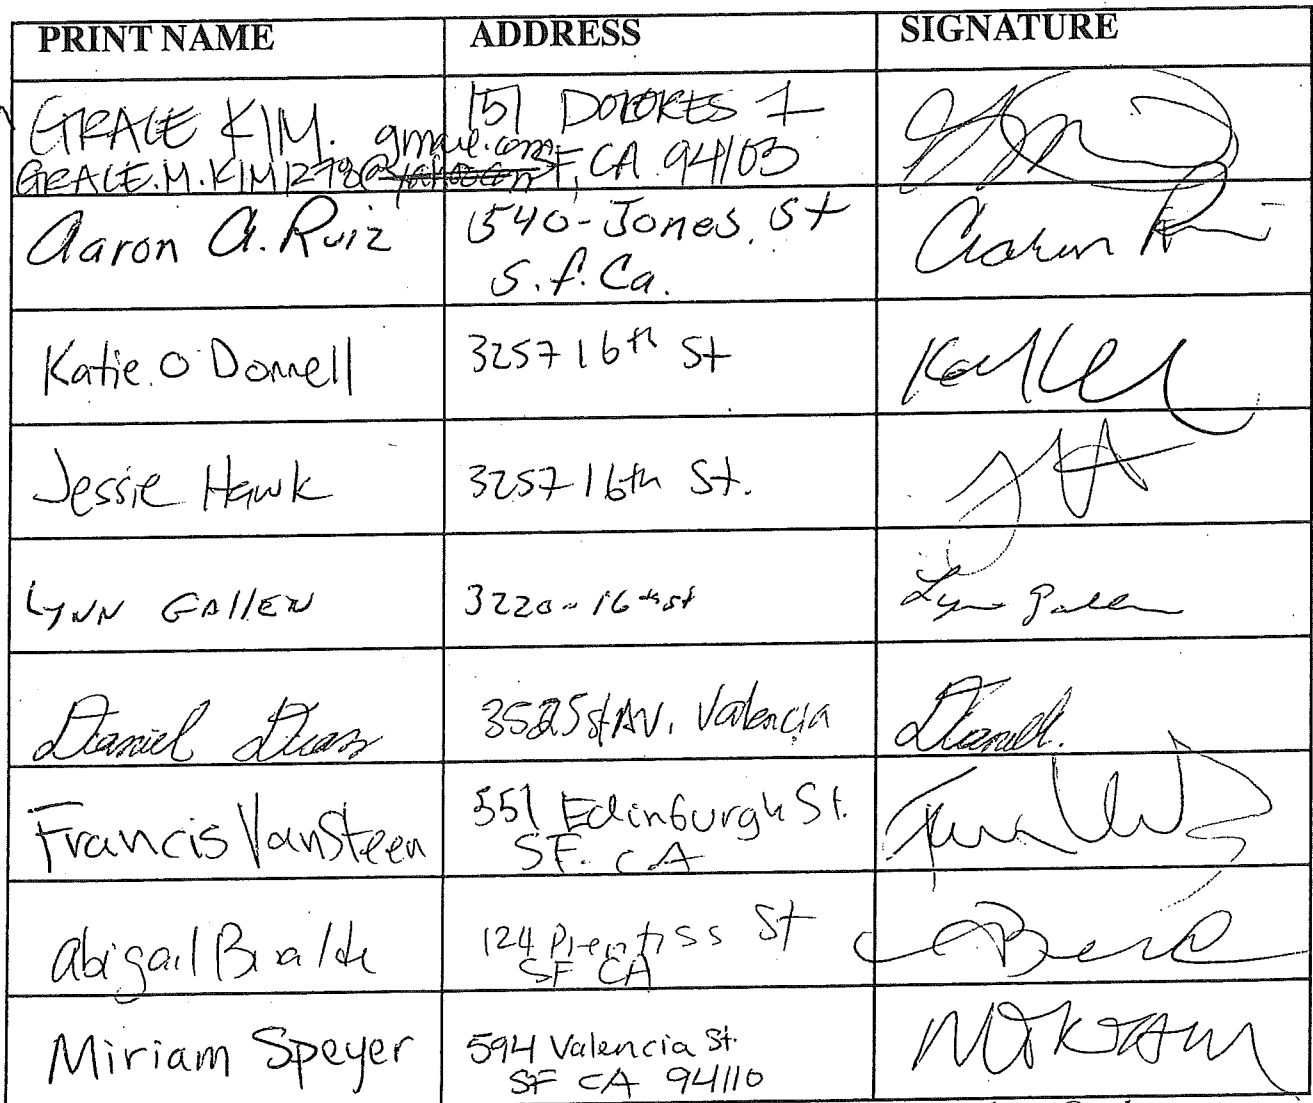 PRINT NAME ADDRESS SIGNATURE
GRACE KIM. 151 DOLORES 1
gmail.com
GRACE.M.KIM1278@ F, CA 94103
Aaron A. Ruiz 1540-Jones St Aaron
S.f. Ca.
Katie O'Donnell 3257 16th St
Jessie Hawk 3257 16th St.
LYNN GAllEN 3220-16th st Lynn Gallen
Daniel 3525 st AV. Valencia Daniel
Francis VanSteen 551 Edinburgh St.
SF. CA
abigail 124 Prentiss St
SF CA
Miriam Speyer 594 Valencia St.
SF CA 94110